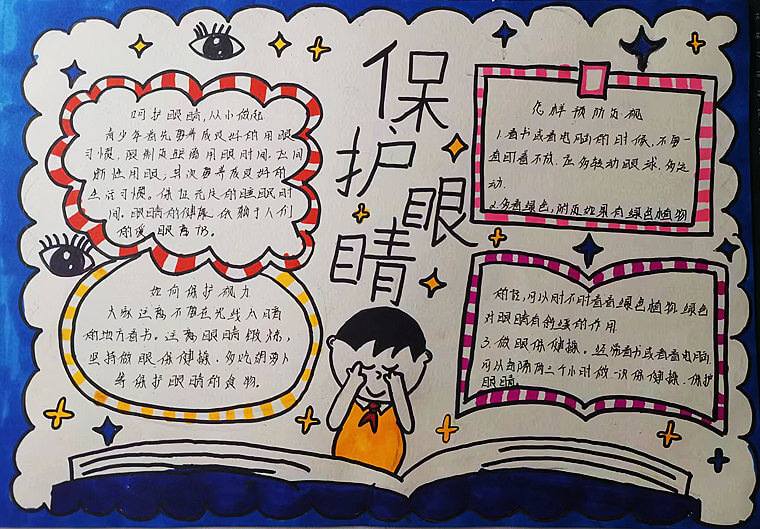 保护眼睛
呵护眼睛，从小做起
青少年首先要养成良好的用眼
习惯，限制连续用眼时间，应间
断性用眼；其次要养成良好的
生活习惯。保证充足的睡眠时
间，眼睛的健康依赖于人们
的爱眼育仍。
如何保护视力
大脉远离不要在光线入暗
的地方看书。远离眼睛锻炼，
坚持做眼保健操，多吃胡萝卜
等保护眼睛的食物。
怎样预防近视
1.看书或看电脑的时候，不要一
直盯着不放，应多转动眼球，多运
动.
2.多看绿色，附近如果有绿色植物
的话，可以时不时看看绿色植物，绿色
对眼睛有舒缓的作用.
3.做眼保健操。经常看书或者看电脑，
可以每隔两三个小时做一次保健操，保护
眼睛。